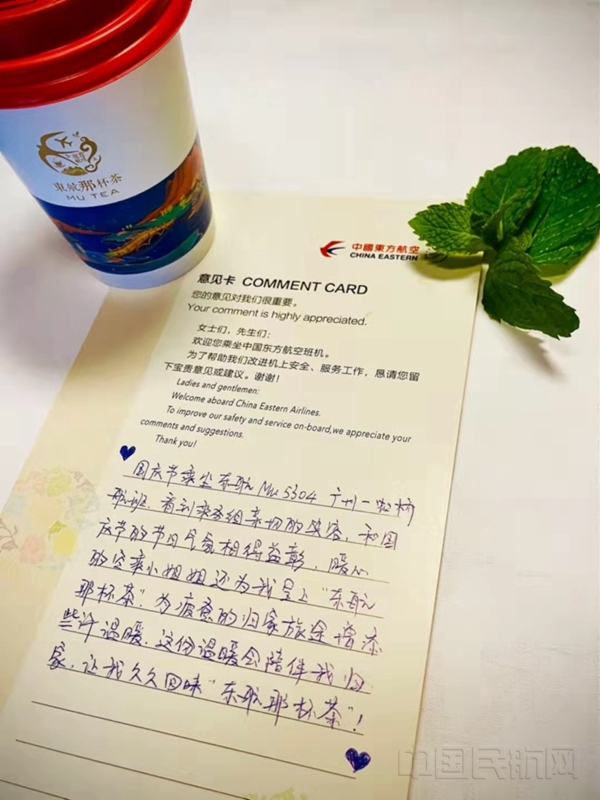 東航那杯茶
MU TEA
中國東方航空
CHINA EASTERN
意见卡 COMMENT CARD
您的意见对我们很重要。
Your comment is highly appreciated.
女士们，先生们：
欢迎您乘坐中国东方航空班机。
为了帮助我们改进机上安全、服务工作，恳请您留
下宝贵意见或建议。谢谢！
Ladies and gentlemen:
Welcome aboard China Eastern Airlines.
To improve our safety and service on-board,we appreciate your
comments and suggestions.
Thank you!
国庆节乘坐东航Mu5304 广州一虹桥
航班，看到乘务组亲切的笑容，和国
庆节的节日气氛相得益彰，暖心
的空乘小姐姐还为我呈上"东航
那杯茶"，为疲惫的归家旅途增添
些许温暖，这份温暖会陪伴我归
家，让我久久回味"东航那杯茶"！
中国民航网